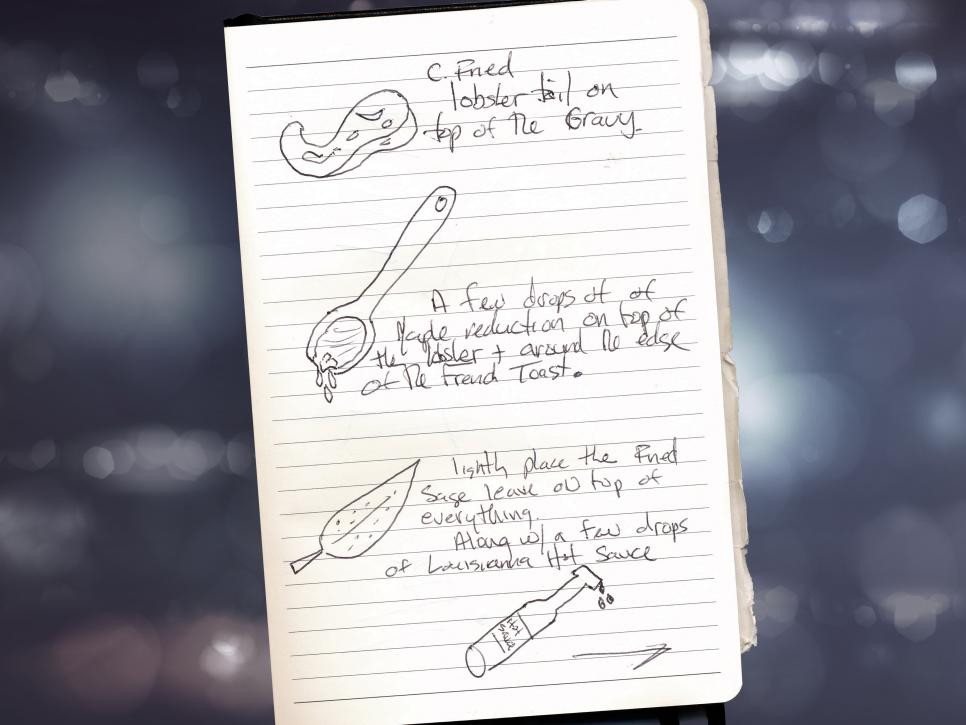 C. Fried
lobster tail on
top of the Gravy
A few drops of of
Maple reduction on top of
the lobster + around the edge
of the French Toast.
lightly place the Fried
Sage leave on top of
everything.
Along w/ a few drops
of Louisianna Hot Sauce
Hot
Sauce